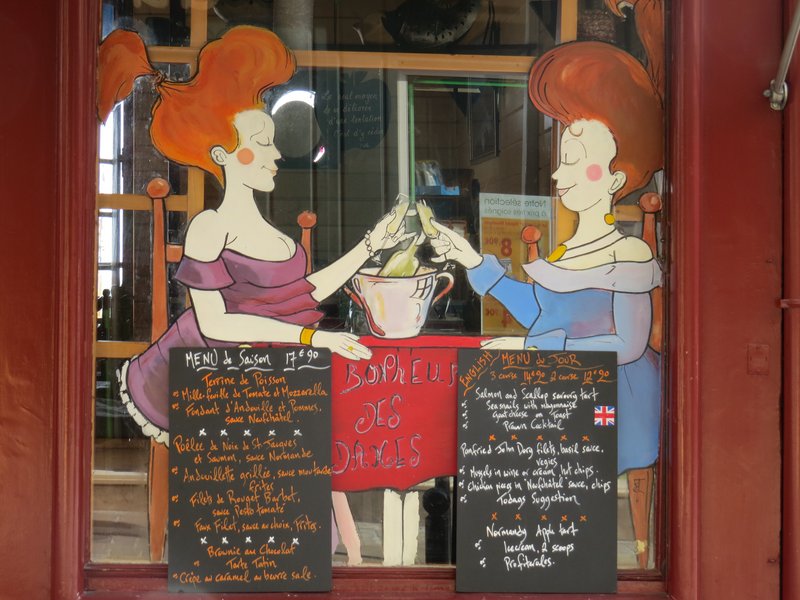 Le seul moyen
de se délivrer
d'une tentation
c'est d'y céder
Notre sélection
à prix soignés
8
90€
BONHEUR
DES
DAMES
MENU de Saison 17€90
Terrine de Poisson
Mille-feuille de Tomate et Mozzerella
Fondant d'Andouille et Pommes,
sauce Neufchâtel
Poêlée de Noix de St. Jacques
et Saumon, sauce Normande
Andouillette grillée, sauce moutarde
frites
Filets de Rouget Barbet,
sauce Pesto tomaté
Faux Filet, sauce au choix, Frites.
Brownie au Chocolat
Tarte Tatin
Crêpe au caramel au beurre salé.
ENGLISH MENU du JOUR
3 course 14€90 2 course 12€90
Salmon and Scallop savoury tart
Seasnails with mayonnaise
Goatcheese on Toast
Prawn Cocktail
Panfried John Dory filets, basil sauce,
vegies
Mussels in wine or cream, hot chips.
Chicken pieces in Neufchâtel sauce, chips
Todays Suggestion
Normandy Apple tart
Icecream, 2 scoops
Profiteroles.